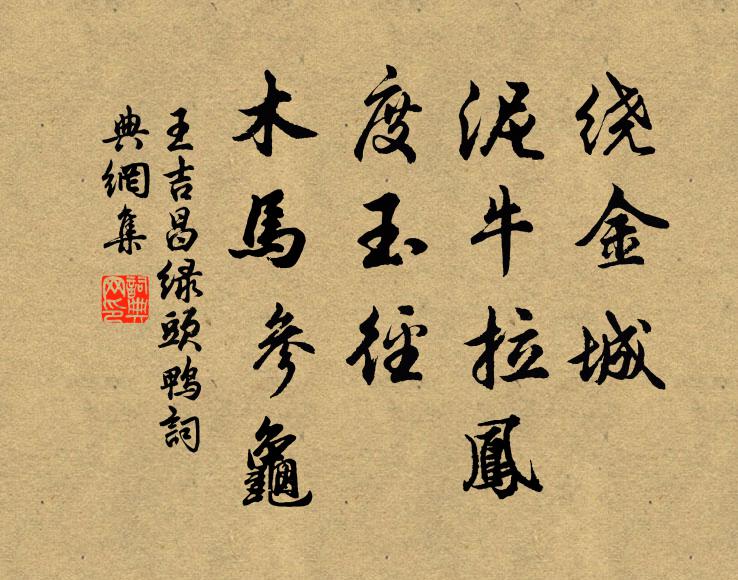 绕金城
泥牛拉鳳
度玉徑
木馬參龜
王吉昌绿頭鴨詞
典網集
詞典
网印